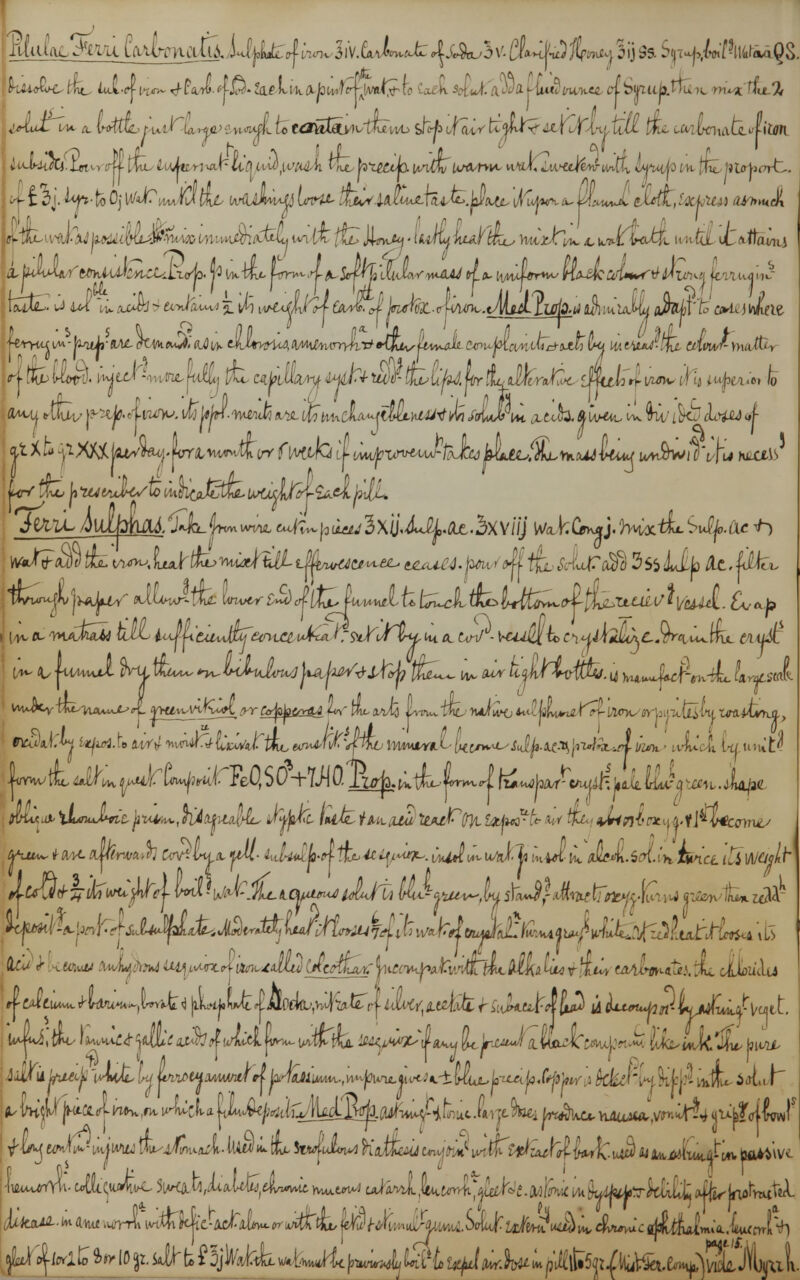 Pilulae Ferri Carbonatis. Sulphate of iron ℥iv. Carbonate of Soda ℥v. Clarified Honey ℥ijss. Syrup, boil^g Water aa QS.
Dissolve the sul. of iron & Carb. of So. each in a pint of wat. to each solut. add a fluid ounce of Syrup. Then mix the 2
solut^s in a bottle just large enough to contain them, stop it air tight & set it by, till the carbonate of iron
subsides. Pour off the supernat. liquid, wash the precip. with warm wat. sweeten^d with syrup in the proport.
of f℥j. syr. to Oj Wat. until the washings loose their saline taste, place it upon a flannel cloth, express as much
of the wat. as possible & mix immediately with the Honey. lastly heat the mixt. in a wat. bath until it attains
a pilular consistence. Prop. is in the form of a Soft pilular mass of a uniform black colour & strong ferrugin^s
taste. is sol. in acids & contains ½ its weight of Carb. of protox. of iron. Med Prop. is admirably adapt^d to cases where
ferrugin^s prep^s are demand^d, as in chlorosis, amenorrh. & other female complaints. acts by increas^g the colour^g matter
of the blood. inject^g more fully the capillary syst. & redd^g the lips. for the alterative effects of iron it is superior to
any other prep. of iron. its ppl. merits are its unchangeableness & its solub^y in acids. given in div^d doses of
gr X to gr XXX per day. for a month or f weeks if improvement takes place. The mass being undivid^d it is necess^y
for the prescriber to indicate the weight of each pill.
Ferri Sulphas. Take Iron wire cut in pieces ℥Xij. Sulp. ac. ℥XViij Wat. Congj. mix the Sulp. ac &
wat. & add the iron, heat the mixt. till effervescence ceases. pour off the Solut. add ℥ss Sulp ac. filter
through paper allow^g the lower end of the funnel to touch the bottom of the receiv^g vessel. Evap
in a matrass till sufficiently concentrat^d. set it by in a cov^d vessel to crystallize. drain the cryst^s
in a funnel dry them on bibulous paper & stop them in air tight bottles. is manufact^d on the large scale
under the name of green vitriol or Copperas for the arts from the native sulphuret of iron or pyrites by roasting,
oxidat. by expos. to air & moist. & lixiviat. the constit^s of the mineral become sulp. ac. & protox. of iron which by unit^g
form the salt in quest. Composit. FeO, SO³+7HO. Prop. in the form of transpar^t cryst^s pale blue green. shape
oblique rhombic prism, disagreeable styptic taste & an acid react. On expos^e to air they absorb oxyg. & 1^st become
green & are afterwards cov^d by a yell. subsulp. of the sesquiox. insol in wat. is insol in alcoh. Sol. in twice its weight
of cold & ¾ its weight of boil^g wat. The aqueous solut. is blue green, by stand^g attracts oxyg. turns green then redd^h
deposit^g a port. of subsulphate. Moderately heat^d it loses of its wat. of crystal. turns grey^h white. At red heat it loses its
acid & becomes anhydrous sesquiox. of iron called Colcothar. Incompat. with the Alkalies & their carbonates, the chlorides
of calcium & barium, borate & phosphate of Soda, nitrate of silver, acetate & subacet. of lead is decompos^d by astring^t veget.
infus^s, the tannic & gallic acids of which form with the sesquiox. if any be present a black compound like ink. The pure
salt is precip^d white by ferrocyanuret of potassium, impure gives a blue precip. Copper is detect^d by dipp^g in the solut
a bright piece of iron, on which a film is deposited. Med Prop. astring^t & tonic. large doses produce nausea, vomit^g & grip^g of bowl^s
& long contin^d injures the stomach. Used in the Scrofulous diathesis conjoin^d with extract of bark. used as an astring^t in passive
hemorrh. colliquative sweats, diabetes, chronic mucous catarrh, leucorrh. gleet &c. as tonic in dyspep. & debility after protracted
disease. in amenorrh with defic^t act. alone or with the fetid & stimul^g gums. Solut. extern^y used in chronic ophthalmia, leucorrh &
gleet of 1 or 2 to 8 or 10 gr. salt to f℥j Wat. the wat. must be previously boil^d to expel air. Dose in pill 1 to 5 gr. (Mist. Fer. Comp.) vide page 15. Myrrh.